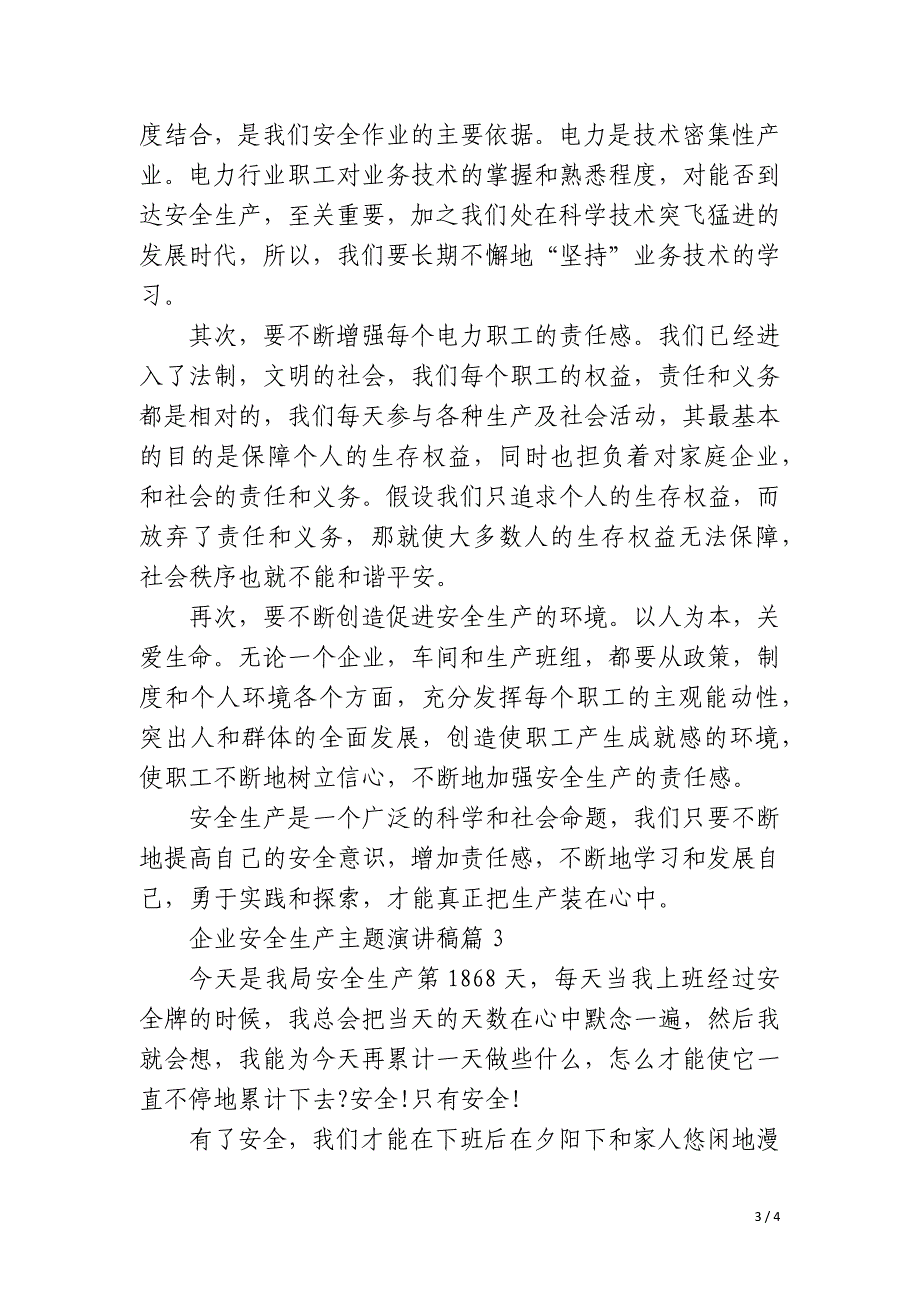 度结合，是我们安全作业的主要依据。电力是技术密集性产
业。电力行业职工对业务技术的掌握和熟悉程度，对能否到
达安全生产，至关重要，加之我们处在科学技术突飞猛进的
发展时代，所以，我们要长期不懈地“坚持”业务技术的学
习。
其次，要不断增强每个电力职工的责任感。我们已经进
入了法制，文明的社会，我们每个职工的权益，责任和义务
都是相对的，我们每天参与各种生产及社会活动，其最基本
的目的是保障个人的生存权益，同时也担负着对家庭企业，
和社会的责任和义务。假设我们只追求个人的生存权益，而
放弃了责任和义务，那就使大多数人的生存权益无法保障，
社会秩序也就不能和谐平安。
再次，要不断创造促进安全生产的环境。以人为本，关
爱生命。无论一个企业，车间和生产班组，都要从政策，制
度和个人环境各个方面，充分发挥每个职工的主观能动性，
突出人和群体的全面发展，创造使职工产生成就感的环境，
使职工不断地树立信心，不断地加强安全生产的责任感。
安全生产是一个广泛的科学和社会命题，我们只要不断
地提高自己的安全意识，增加责任感，不断地学习和发展自
己，勇于实践和探索，才能真正把生产装在心中。
企业安全生产主题演讲稿篇 3
今天是我局安全生产第 1868 天，每天当我上班经过安
全牌的时候，我总会把当天的天数在心中默念一遍，然后我
就会想，我能为今天再累计一天做些什么，怎么才能使它一
直不停地累计下去?安全!只有安全!
有了安全，我们才能在下班后在夕阳下和家人悠闲地漫
3 / 4